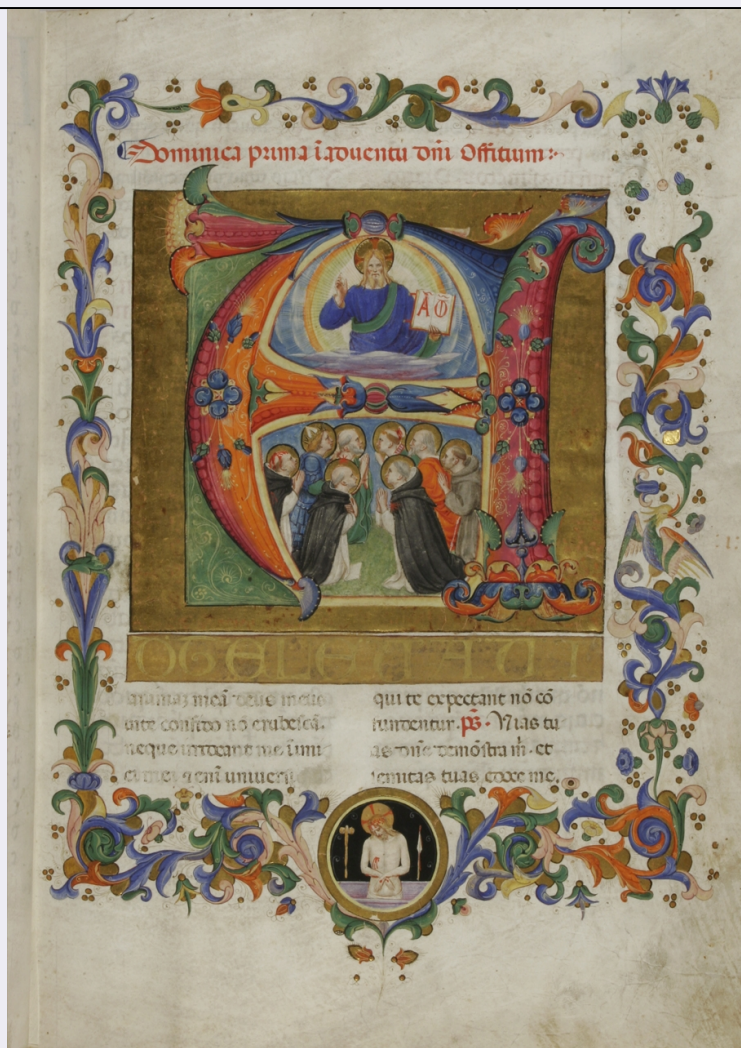 Dominica prima ī aduentu dn̄i Offitium:~
A Ꙍ
D TE LEUAUI
animaz meā deus meus
inte confido nō erubescā.
neque irrideant me inimi
ci mei ⁊ enī universi
qui te expectant nō cō
fundentur. ps. Vias tu
as dn̄e demōstra m̄. et
semitas tuas edoce me.